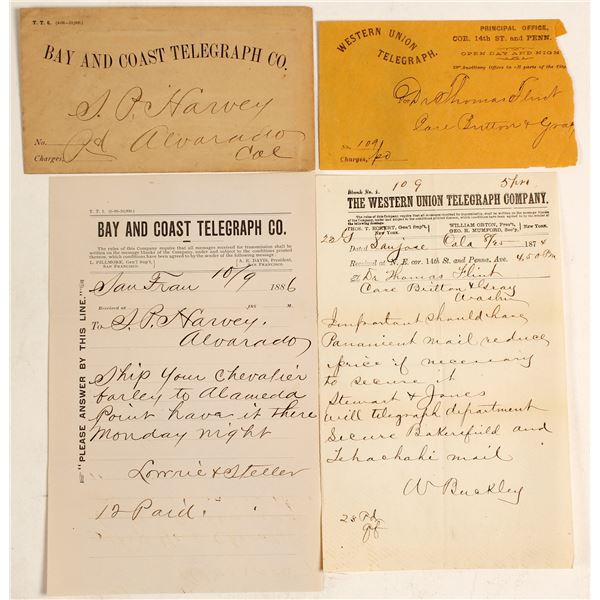 T. T. 6.
BAY AND COAST TELEGRAPH CO.
S. P. Harvey
No.
Pd Alvarado
Charges,
Cal
WESTERN UNION
TELEGRAPH.
PRINCIPAL OFFICE,
COR. 14th ST. and PENN.
OPEN DAY AND NIGH
Auxiliary Offices in all parts of the City
For Dr Thomas Flint
Care Britton & Gray
No. 109
Charges, pd
T. T. 1.
BAY AND COAST TELEGRAPH CO.
The rules of this Company require that all messages received for transmission shall be
written on the message blanks of the Company, under and subject to the conditions printed
thereon, which conditions have been agreed to by the sender of the following message:
L. FILLMORE, Gen'l Sup't, SAN FRANCISCO.
A. E. DAVIS, President, SAN FRANCISCO.
San Fran 10/9 1886
Received at 188 M.
To S. P. Harvey.
Alvarado
Ship your Chevalier
barley to Alameda
Point have it there
Monday night
Lowrie & Steller
12 Paid.
"PLEASE ANSWER BY THIS LINE."
Blank No. 1. 109 5 pm
THE WESTERN UNION TELEGRAPH COMPANY.
The rules of this Company require that all messages received for transmission shall be
written on the message blanks of the Company, under and subject to the conditions printed
thereon, which conditions have been agreed to by the sender of the following message.
THOS. T. ECKERT, Gen'l Sup't, New York.
WILLIAM ORTON, Pres't,
GEO. H. MUMFORD, Sec'y, New York.
Dated San Jose Cala 7/25 1874
Received at N. E. cor. 14th St. and Penna. Ave. 4,50 Pm
To Dr Thomas Flint
Care Britton & Gray
Washn
Important should have
Panamient mail reduce
price if necessary
to secure it
Stewart & Jones
will telegraph department
Secure Bakersfield and
Tehachahi mail
W Buckley
28 Pd